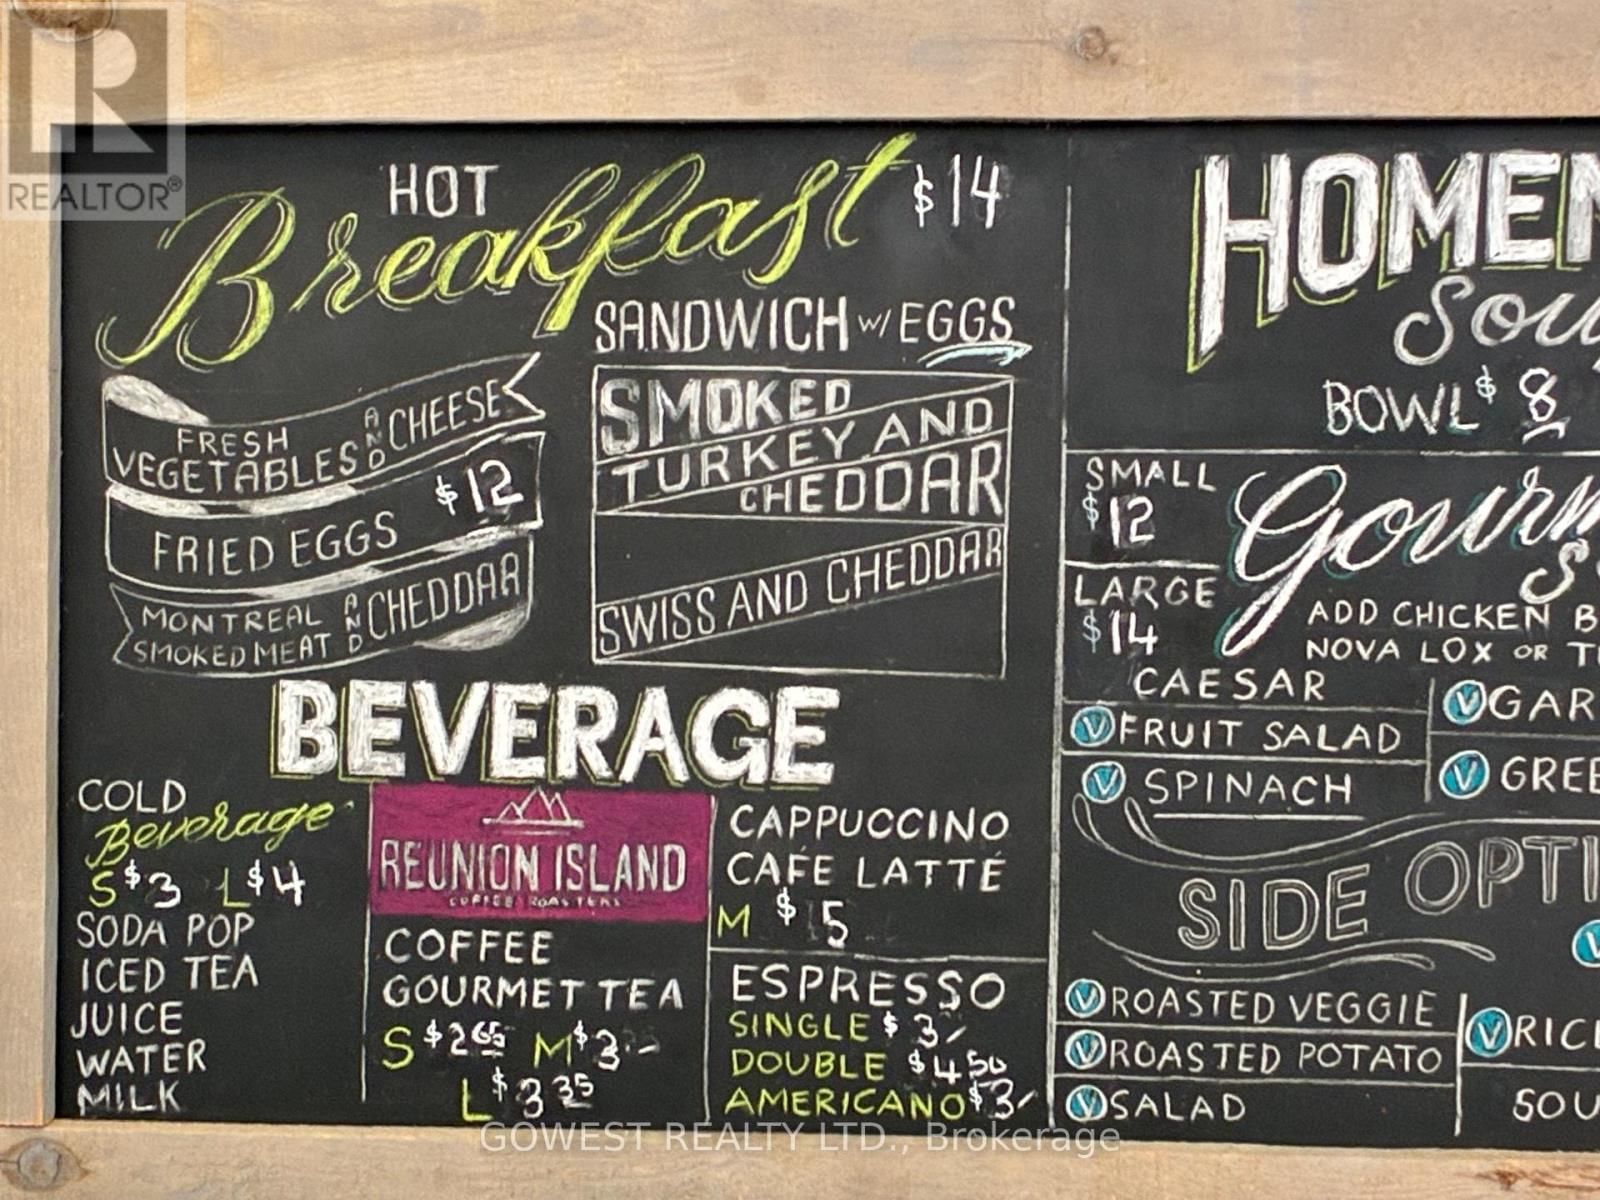 REALTOR®
HOT
Breakfast $14
SANDWICH w/ EGGS
FRESH
VEGETABLES AND CHEESE
FRIED EGGS $12
MONTREAL
SMOKED MEAT AND CHEDDAR
SMOKED
TURKEY AND
CHEDDAR
SWISS AND CHEDDAR
BEVERAGE
COLD
Beverage
S $3 L $4
SODA POP
ICED TEA
JUICE
WATER
MILK
REUNION ISLAND
COFFEE ROASTERS
COFFEE
GOURMET TEA
S $2.65 M $3.-
L $3.35
CAPPUCCINO
CAFE LATTE
M $5
ESPRESSO
SINGLE $3/
DOUBLE $4.50
AMERICANO $3/
HOMEM
Sou
BOWL $8
SMALL
$12
LARGE
$14
Gourm
S
ADD CHICKEN B
NOVA LOX OR T
CAESAR
V FRUIT SALAD
V SPINACH
V GAR
V GREE
SIDE OPTI
V
V ROASTED VEGGIE
V ROASTED POTATO
V SALAD
V RIC
SOU
GOWEST REALTY LTD., Brokerage